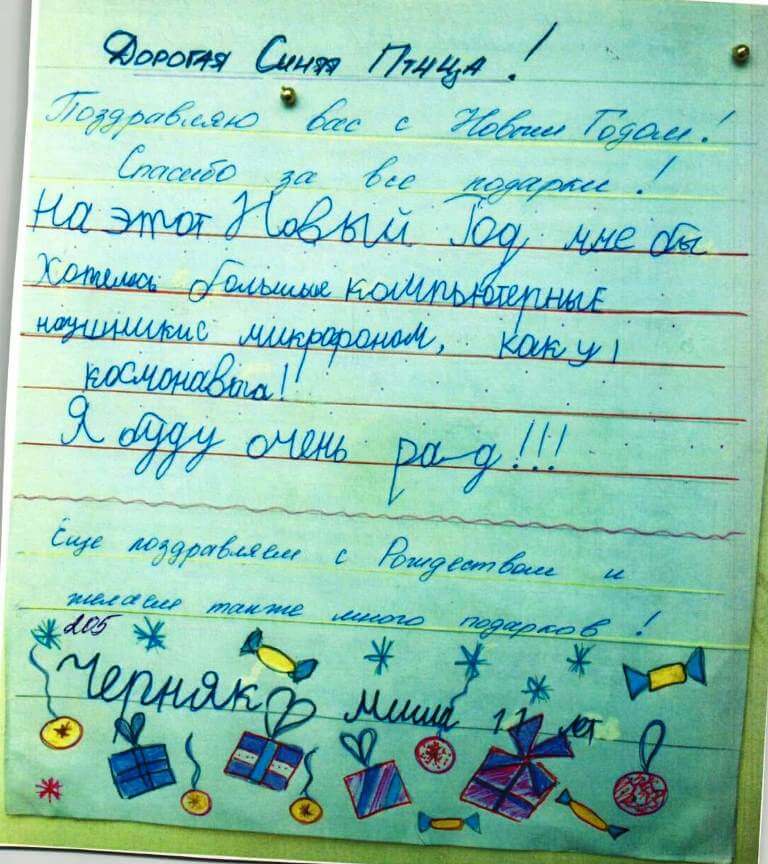 Дорогая Синяя Птица!
Поздравляю вас с Новым Годом!
Спасибо за все подарки!
На этот Новый Год мне бы
хотелось большые компьютерные
наушники с микрофоном, как у
космонавта!
Я буду очень рад!!!
Еще поздравляем с Рождеством и
желаем также много подарков!
205
Черняк Миша 11 лет